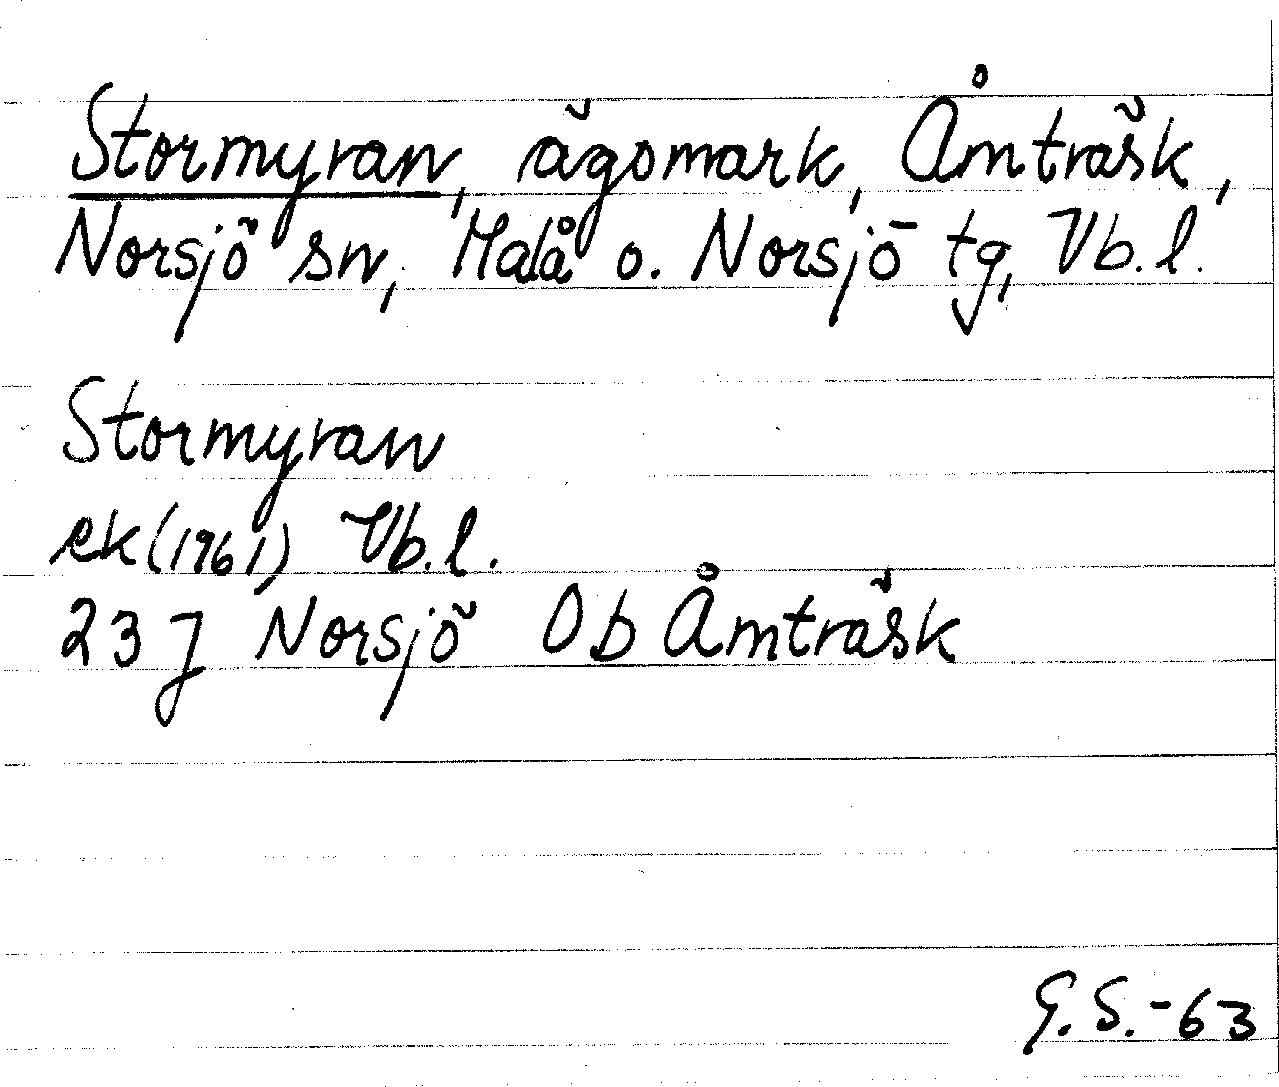 Stormyran, ägomark, Åmträsk,
Norsjö sn, Malå o. Norsjö tg, Vb.l.
Stormyran
ek (1961) Vb.l.
23 J Norsjö 0b Åmträsk
G.S.-63